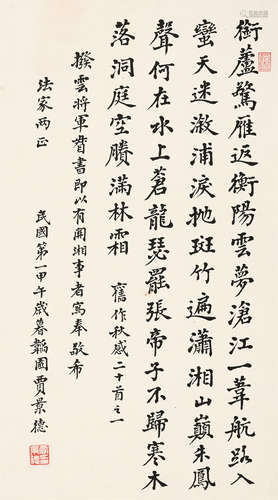 銜蘆驚雁返衡陽雲夢滄江一葦航路入
蠻天迷漵浦淚拋斑竹遍瀟湘山巔朱鳳
聲何在水上蒼龍瑟罷張帝子不歸寒木
落洞庭空賸滿林霜 舊作秋感二十首之一
撥雲將軍督書即以有關湘事者寫奉敬希
法家兩正 民國第一甲午歲暮韜園賈景德